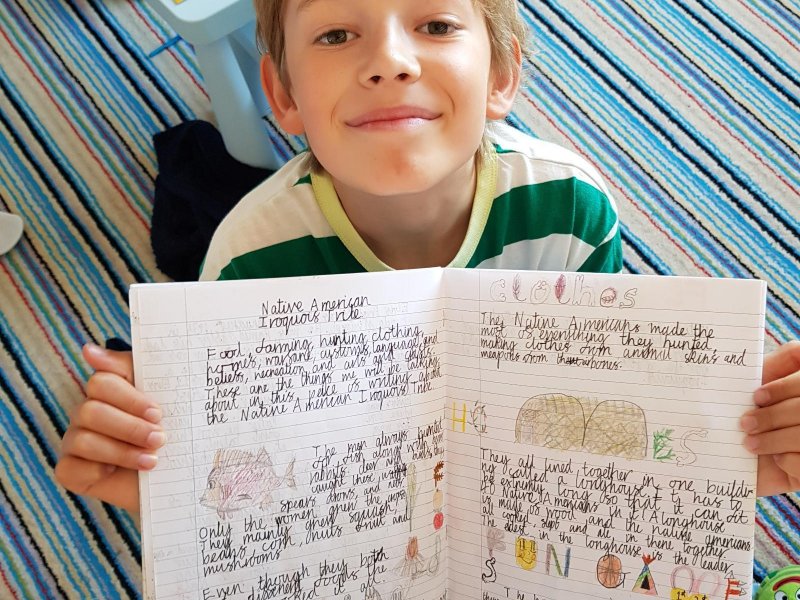 Native American
Iroquois Trite
Food, farming, hunting, clothing,
homes, warfare, customs, language, and
beliefs, recreation, and arts and crafts.
These are the things me will be talking
about in this peice os writing about
the Native American Iroquois Trite
The men always hunted
for fish along with
rabbits deer and
caught these using
spears bows, and nets
Only the women grew the crops
They mainly grew squash,
beans, corn, nuts fruit and
mushrooms
Even though they both
it all.
clothes
The Native Americans made the
most os everything they hunted,
making clothes from animal skins and
weapons from bones.
HO S
They all lived together in one buildi-
ng (called a longhouse) it has to
be extremly long so that it can sit
all Native Americans in it. A longhouse
is made os wood and the native americans
all cooked, slept and ate in there together
The in the longhouse is the leader.